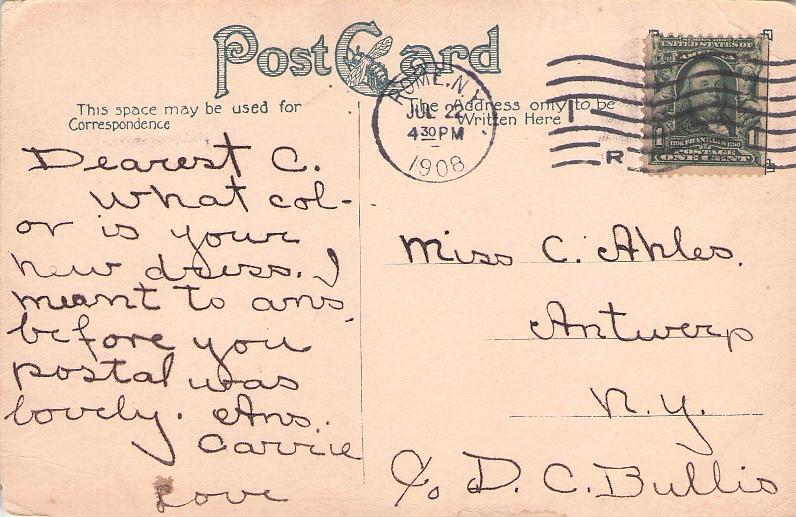 Post Card
This space may be used for
Correspondence
The Address only to be
Written Here
ROME, N.Y.
JUL 22
4 30 PM
1908
R
UNITED STATES OF
AMERICA
FRANKLIN
POSTAGE
ONE CENT
Dearest C.
What col-
or is your
new dress. I
meant to ans,
before you
postal was
lovely. Ans..
Carrie
Love
Miss C. Ahles.
Antwerp
N.Y.
c/o D. C. Bullis